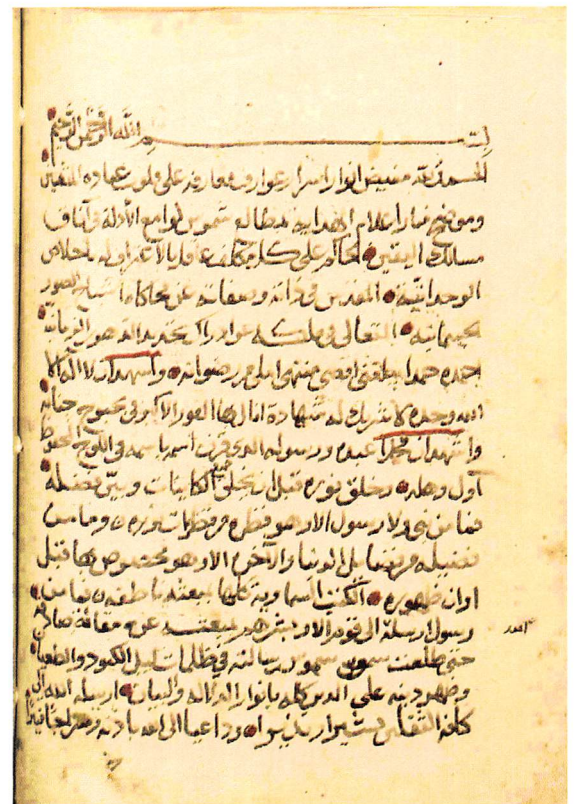 بسم الله الرحمن الرحيم
الحمد لله مفيض انوار اسرار عوارف معارفه على قلوب عباده المتقين
وموضح منار اعلام الهداية بمطالع شموس لوامع الأدلة في آفاق
مسالك اليقين الحاكم على كل مكلف عاقل بالاعتراف له باخلاص
الوحدانية المقدس في ذاته وصفاته عن محاكاة اشباح الصور
الجسمانية المتعالي في ملكه عن ادراك تحديد الدهور الزمانية
احمده حمدا يبلغني اقصى منتهى املي من رضوانه واشهد ان لا اله الا
الله وحده لا شريك له شهادة انال بها الفوز الاكبر في بحبوح جنانه
واشهد ان محمدا عبده ورسوله الذي قرن اسمه باسمه في اللوح المحفوظ
أول وهله وخلق نوره قبل ان يخلق جميع الكاينات وبين تفضيله
فما من نبي ولا رسول الا وهو قطرة من قطرات نوره وما من
فضيلة من فضايل الدنيا والآخرة الا وهو مخصوص بها قبل
اوان ظهوره الكتب السماوية كلها ببعثته ناطقه فما من
رسول ارسله الى قومه الا وبشرهم ببعثته عن مقالة صادقه
حتى طلعت شموس رسالته في ظلمات ليل الكفر والطغيان
وظهر دينه على الدين كله بانوار الدلالة والبيان ارسله الله الى
كافة الثقلين بشيرا ونذيرا وداعيا الى الله باذنه وسراجا منيرا